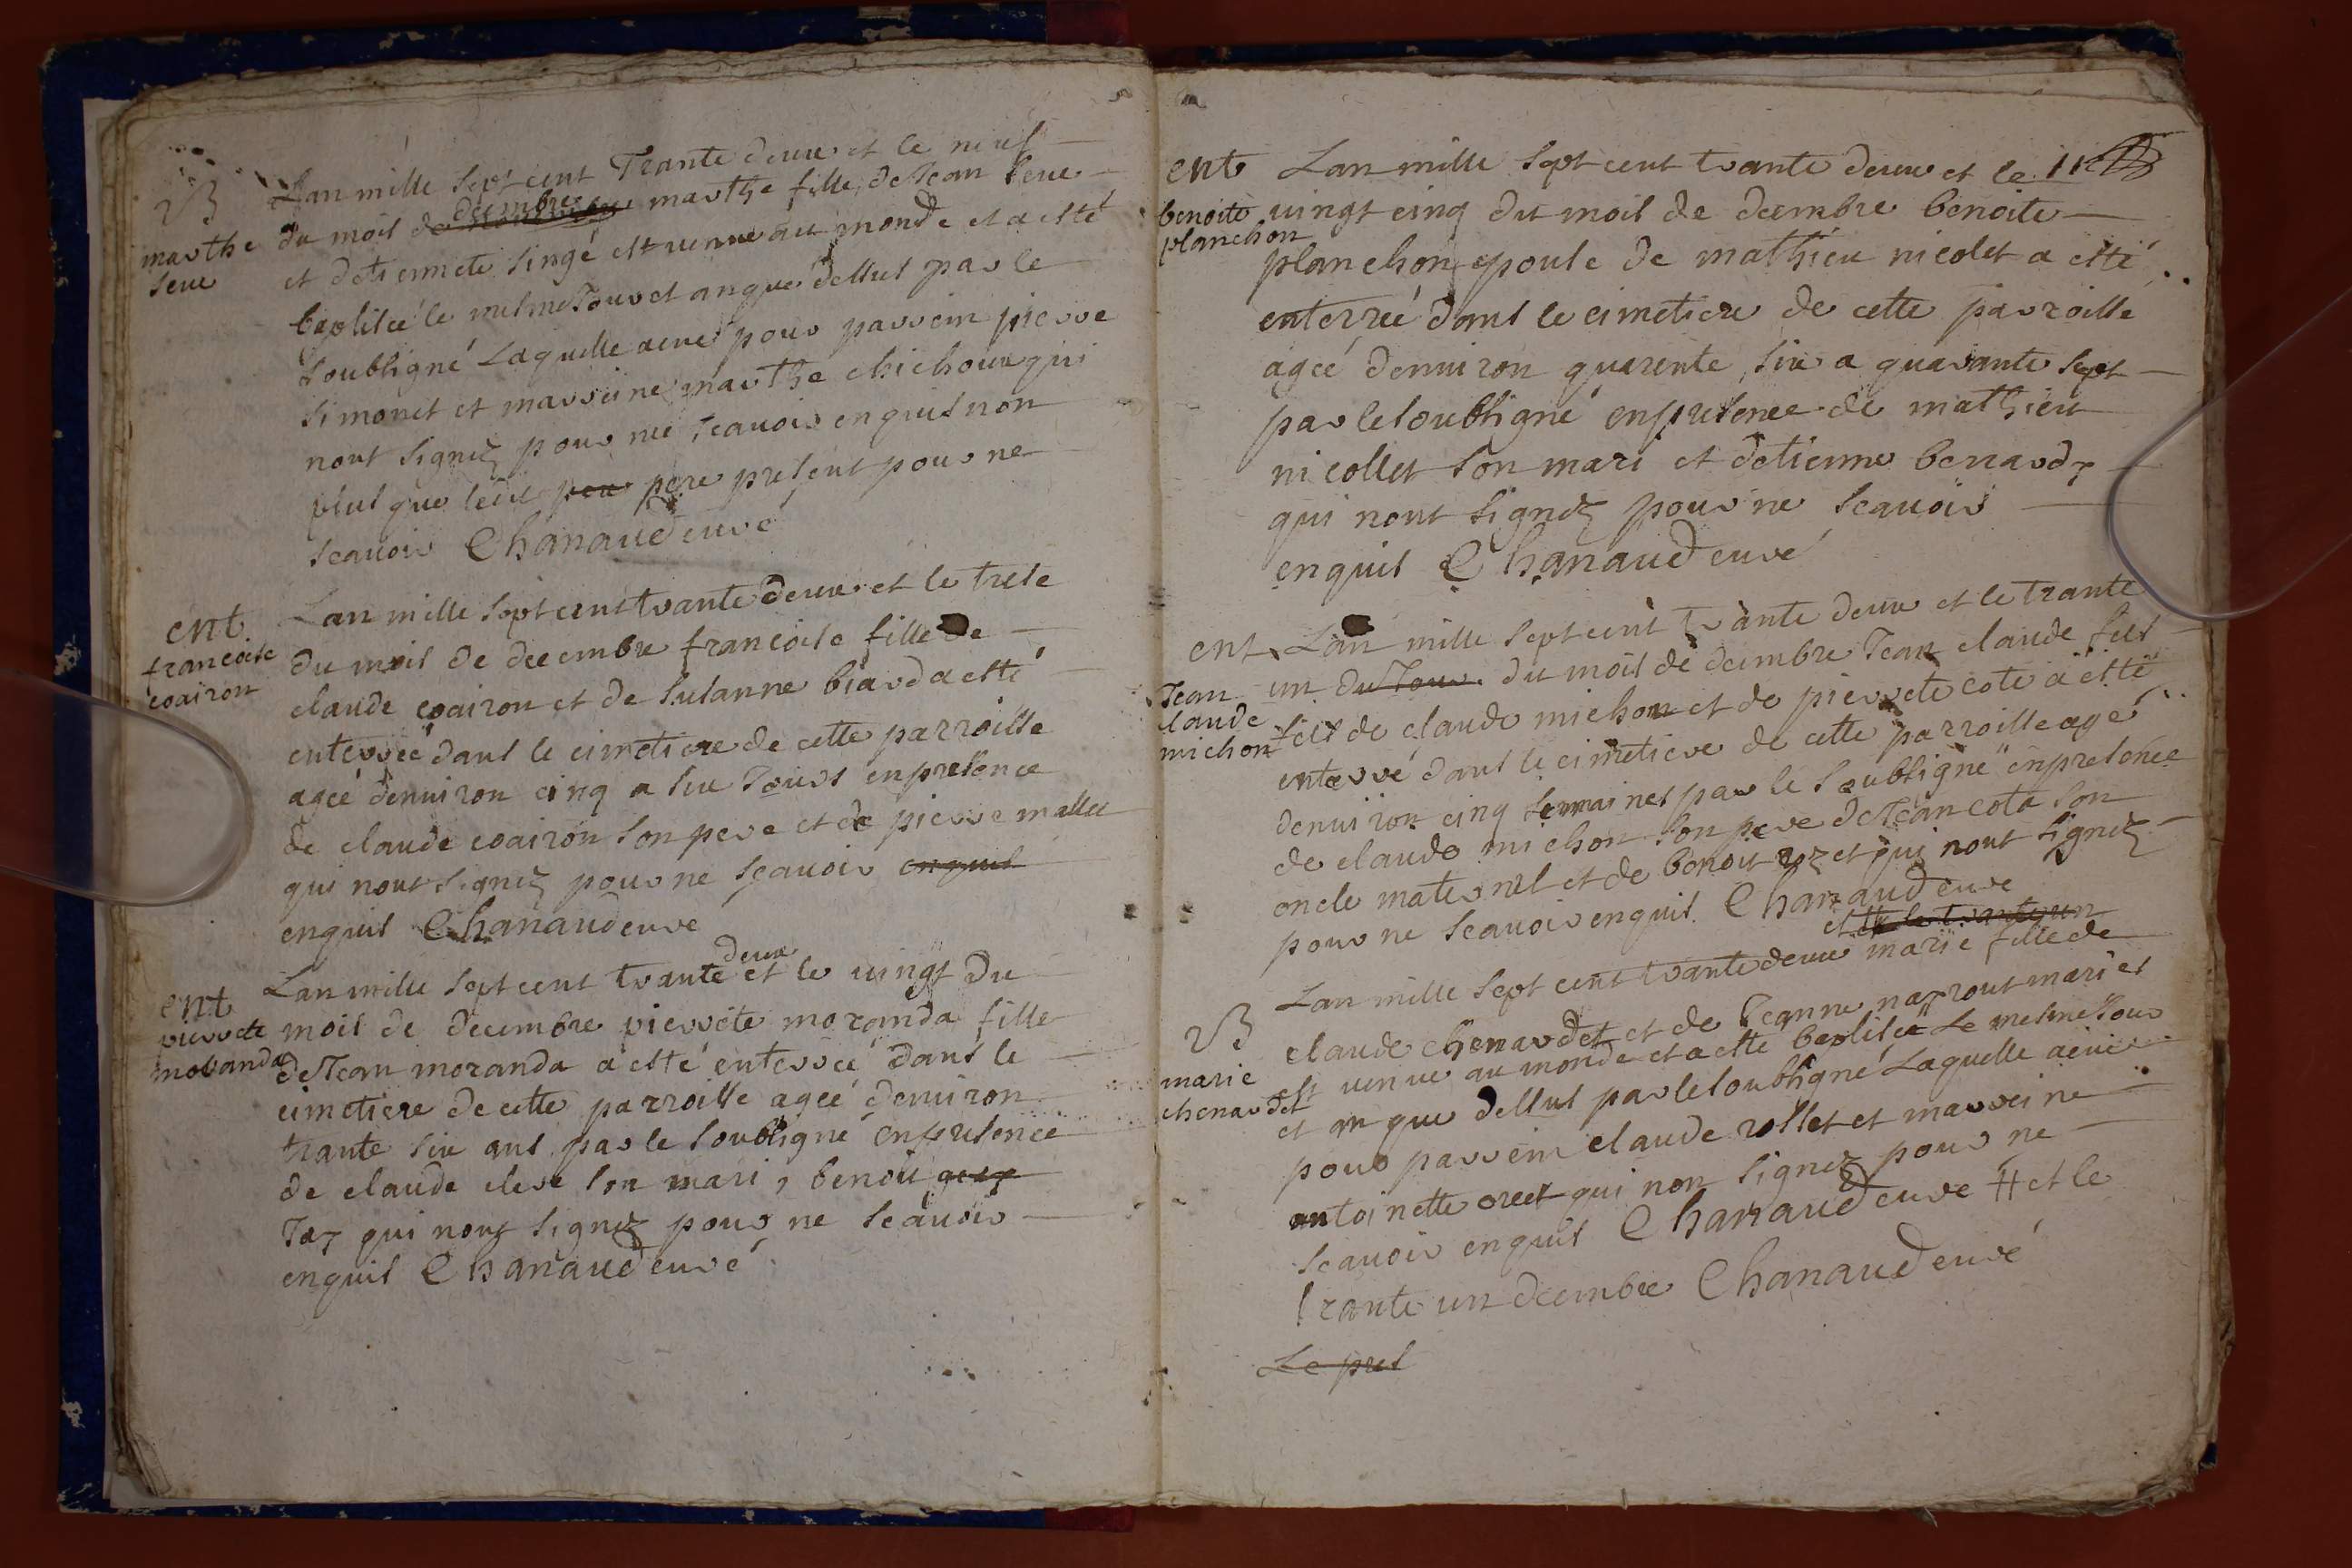 B
marthe
seue
Lan mille sept cent Trante deux et le neuf
du mois de decembre marthe fille de Jean seue
et detiennete singé est venue au monde et a esté
baptisée le mesme Jour et an que dessus par le
soubsigné Laquelle a eue pour parrein pierre
simonet et marreine marthe chichoux qui
nont signez pour ne scauoir enquis non
plus que ledit pere present pour ne
scauoir Chanaud curé
ent.
francoise
coairon
Lan mille sept cent trante deux et le trese
du mois de decembre francoise fille de
claude coairon et de susanne biard a esté
enterrée dans le cimetiere de cette parroisse
agée denuiron cinq a six Jours en presence
de claude coairon son pere et de pierre mallet
qui nont signez pour ne scauoir enquis
enquis Chanaud curé
ent
pierrete
moranda
deux
Lan mille sept cent trante et le uingt du
mois de decembre pierrete moranda fille
de Jean moranda a esté enterrée dans le
cimetiere de cette parroisse agée denuiron
trante six ans par le soubsigné en presence
de claude clere son mari, benoit
Jay qui nont signez pour ne scauoir
enquis Chanaud curé
ent
benoite
planchon
Lan mille sept cent trante deux et le 11
uingt cinq du mois de decembre benoite
planchon epouse de mathieu nicolet a esté
enterrée dans le cimetiere de cette parroisse
agée denuiron quarente six a quarante sept
par le soubsigné en presence de mathieu
nicollet son mari et detienne benard
qui nont signez pour ne scauoir
enquis Chanaud curé
ent
Jean
claude
michon
Lan mille sept cent trante deux et le trante
un du Jour du mois de decembre Jean claude fils
fils de claude michon et de pierrete cote a esté
enterré dans le cimetiere de cette parroisse agé
denuiron cinq semaines par le soubsigné en presence
de claude michon son pere de Jean cota son
oncle maternel et de benoit roz et qui nont signez
pour ne scauoir enquis Chanaud curé
et le trante un
B
marie
chenardet
Lan mille sept cent trante deux marie fille de
claude chenardet et de Jeanne naprout mariés
est venue au monde et a esté baptisée Le mesme Jour
et an que dessus par le soubsigné Laquelle a eue
pour parrein claude rollet et marreine
antoinette orcet qui non signez pour ne
scauoir enquis Chanaud curé # et le
trante un decembre Chanaud curé
Le pres